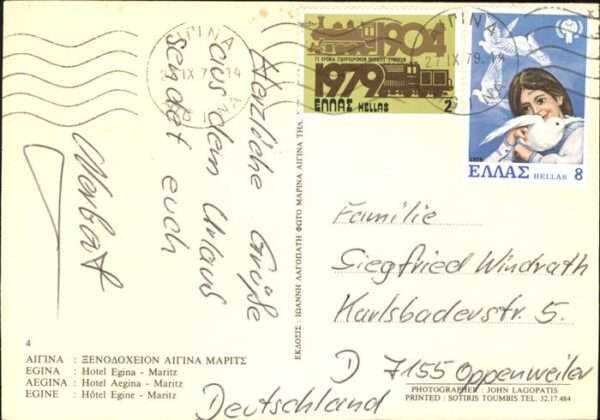 ΑΙΓΙΝΑ
27 IX 79. 14
1904
1979
ΕΛΛΑΣ HELLAS 2
ΕΛΛΑΣ HELLAS 8
Herzliche Grüße
aus dem Urlaub
sendet euch
Herbert
Familie
Siegfried Windrath
Karlsbaderstr. 5.
D 7155 Oppenweiler
Deutschland
ΕΚΔΟΣΙΣ: ΙΩΑΝΝΗ ΛΑΓΟΠΑΤΗ ΦΩΤΟ ΜΑΡΙΝΑ ΑΙΓΙΝΑ ΤΗΛ.
4
ΑΙΓΙΝΑ : ΞΕΝΟΔΟΧΕΙΟΝ ΑΙΓΙΝΑ ΜΑΡΙΤΣ
EGINA : Hotel Egina - Maritz
AEGINA : Hotel Aegina - Maritz
EGINE : Hôtel Egine - Maritz
PHOTOGRAPHER : JOHN LAGOPATIS
PRINTED : SOTIRIS TOUMBIS TEL. 32.17.484